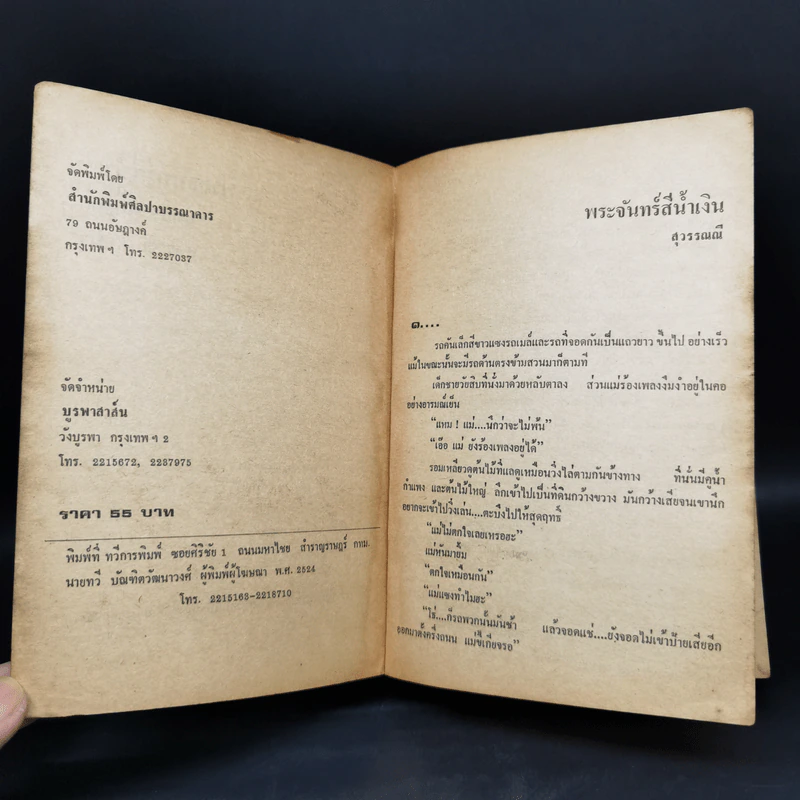 จัดพิมพ์โดย
สำนักพิมพ์ศิลปาบรรณาคาร
79 ถนนอัษฎางค์
กรุงเทพฯ โทร. 2227037
จัดจำหน่าย
บูรพาสาส์น
วังบูรพา กรุงเทพฯ 2
โทร. 2215672, 2237975
ราคา 55 บาท
พิมพ์ที่ ทวีการพิมพ์ ซอยศิริชัย 1 ถนนมหาไชย สำราญราษฎร์ กทม.
นายทวี บัณฑิตวัฒนาวงศ์ ผู้พิมพ์ผู้โฆษณา พ.ศ. 2524
โทร. 2215163-2218710
พระจันทร์สีน้ำเงิน
สุวรรณณี
๑....
รถคันเล็กสีขาวแซงรถเมล์และรถที่จอดกันเป็นแถวยาว ขึ้นไป อย่างเร็ว
แม้ในขณะนั้นจะมีรถด้านตรงข้ามสวนมาก็ตามที
เด็กชายวัยสิบที่นั่งมาด้วยหลับตาลง ส่วนแม่ร้องเพลงงึมงำอยู่ในคอ
อย่างอารมณ์เย็น
“แหม ! แม่....นึกว่าจะไม่พ้น”
“เอ๊อ แม่ ยังร้องเพลงอยู่ได้”
รอมเหลียวดูต้นไม้ที่แลดูเหมือนวิ่งไล่ตามกันข้างทาง ที่นั่นมีคูน้ำ
กำแพง และต้นไม้ใหญ่ ลึกเข้าไปเป็นที่ดินกว้างขวาง มันกว้างเสียจนเขานึก
อยากจะเข้าไปวิ่งเล่น....ตะบึงไปให้สุดฤทธิ์
“แม่ไม่ตกใจเลยเหรอฮะ”
แม่หันมายิ้ม
“ตกใจเหมือนกัน”
“แม่แซงทำไมฮะ”
“ไฮ่....ก็รถพวกนั้นมันช้า แล้วจอดแช่....ยังจอดไม่เข้าป้ายเสียอีก
ออกมาตั้งครึ่งถนน แม่ขี้เกียจรอ”